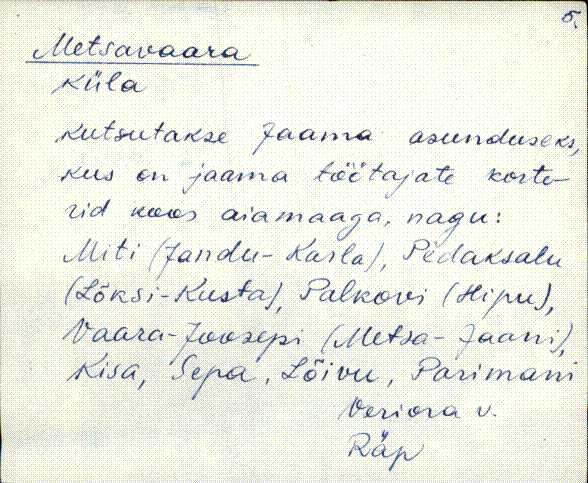 5.
Metsavaara
küla
kutsutakse Jaama asunduseks,
kus on jaama töötajate korte-
rid koos aiamaaga, nagu:
Miti (Jandu-Karla), Pedaksalu
(Lõksi-Kusta), Palkovi (Hipu),
Vaara-Joosepi (Metsa-Jaani),
Kisa, Sepa, Lõivu, Parimani
Veriora v.
Räp